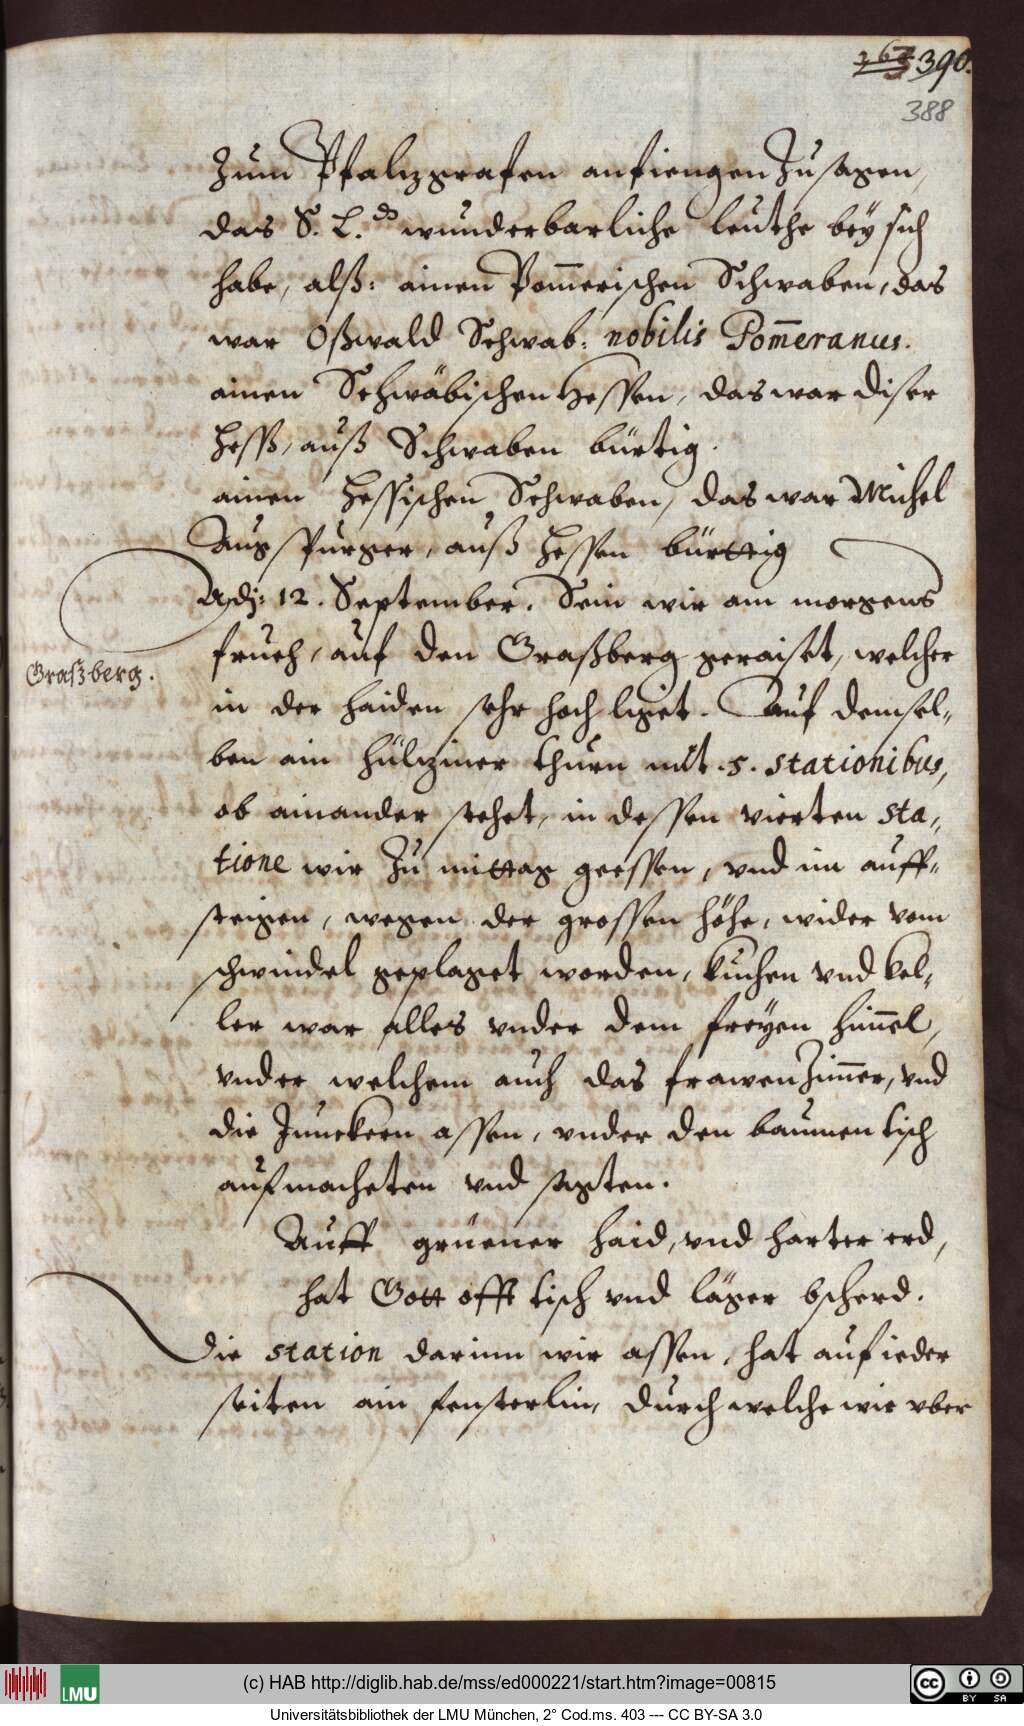 367 390.
388
Zum Pfalizgrafen anfiengen Zusagen,
das S. L.ds wunderbarliche leuthe bey sich
habe, alß: ainen Pom̄erischen Schwaben, das
war Oßwald Schwab: nobilis Pom̄eranus.
ainen Schwäbischen Hessen, das war diser
Heß, auß Schwaben bürtig.
ainen Hessischen Schwaben, das war Michel
Augspurger, auß Hessen bürttig
Adj: 12. September. Sein wir am morgens
frueh, auf den Graßberg geraiset, welcher
Graßberg.
in der haiden sehr hoch ligt. Auf demsel„
ben ain hülziner thurn mit .5. stationibus,
ob ainander stehet, in dessen vierten sta„
tione wir Zu mittag geessen, vnd im auff„
steigen, wegen der grossen höhe, wider vom
schwindel geplaget worden, kuchen vnd kel„
ler war alles vnder dem freyen him̄el,
vnder welchem auch das frawen Zim̄er, vnd
die Junckern assen, vnder den baumen tisch
aufmacheten vnd sagten.
Auff gruener haid, vnd harter erd,
hat Gott offt tisch vnd läger bscherd.
Die station darinn wir assen, hat auf ieder
seiten ain fensterlin, durch welche wir vber
(c) HAB http://diglib.hab.de/mss/ed000221/start.htm?image=00815
Universitätsbibliothek der LMU München, 2° Cod.ms. 403 --- CC BY-SA 3.0
LMU
cc BY SA